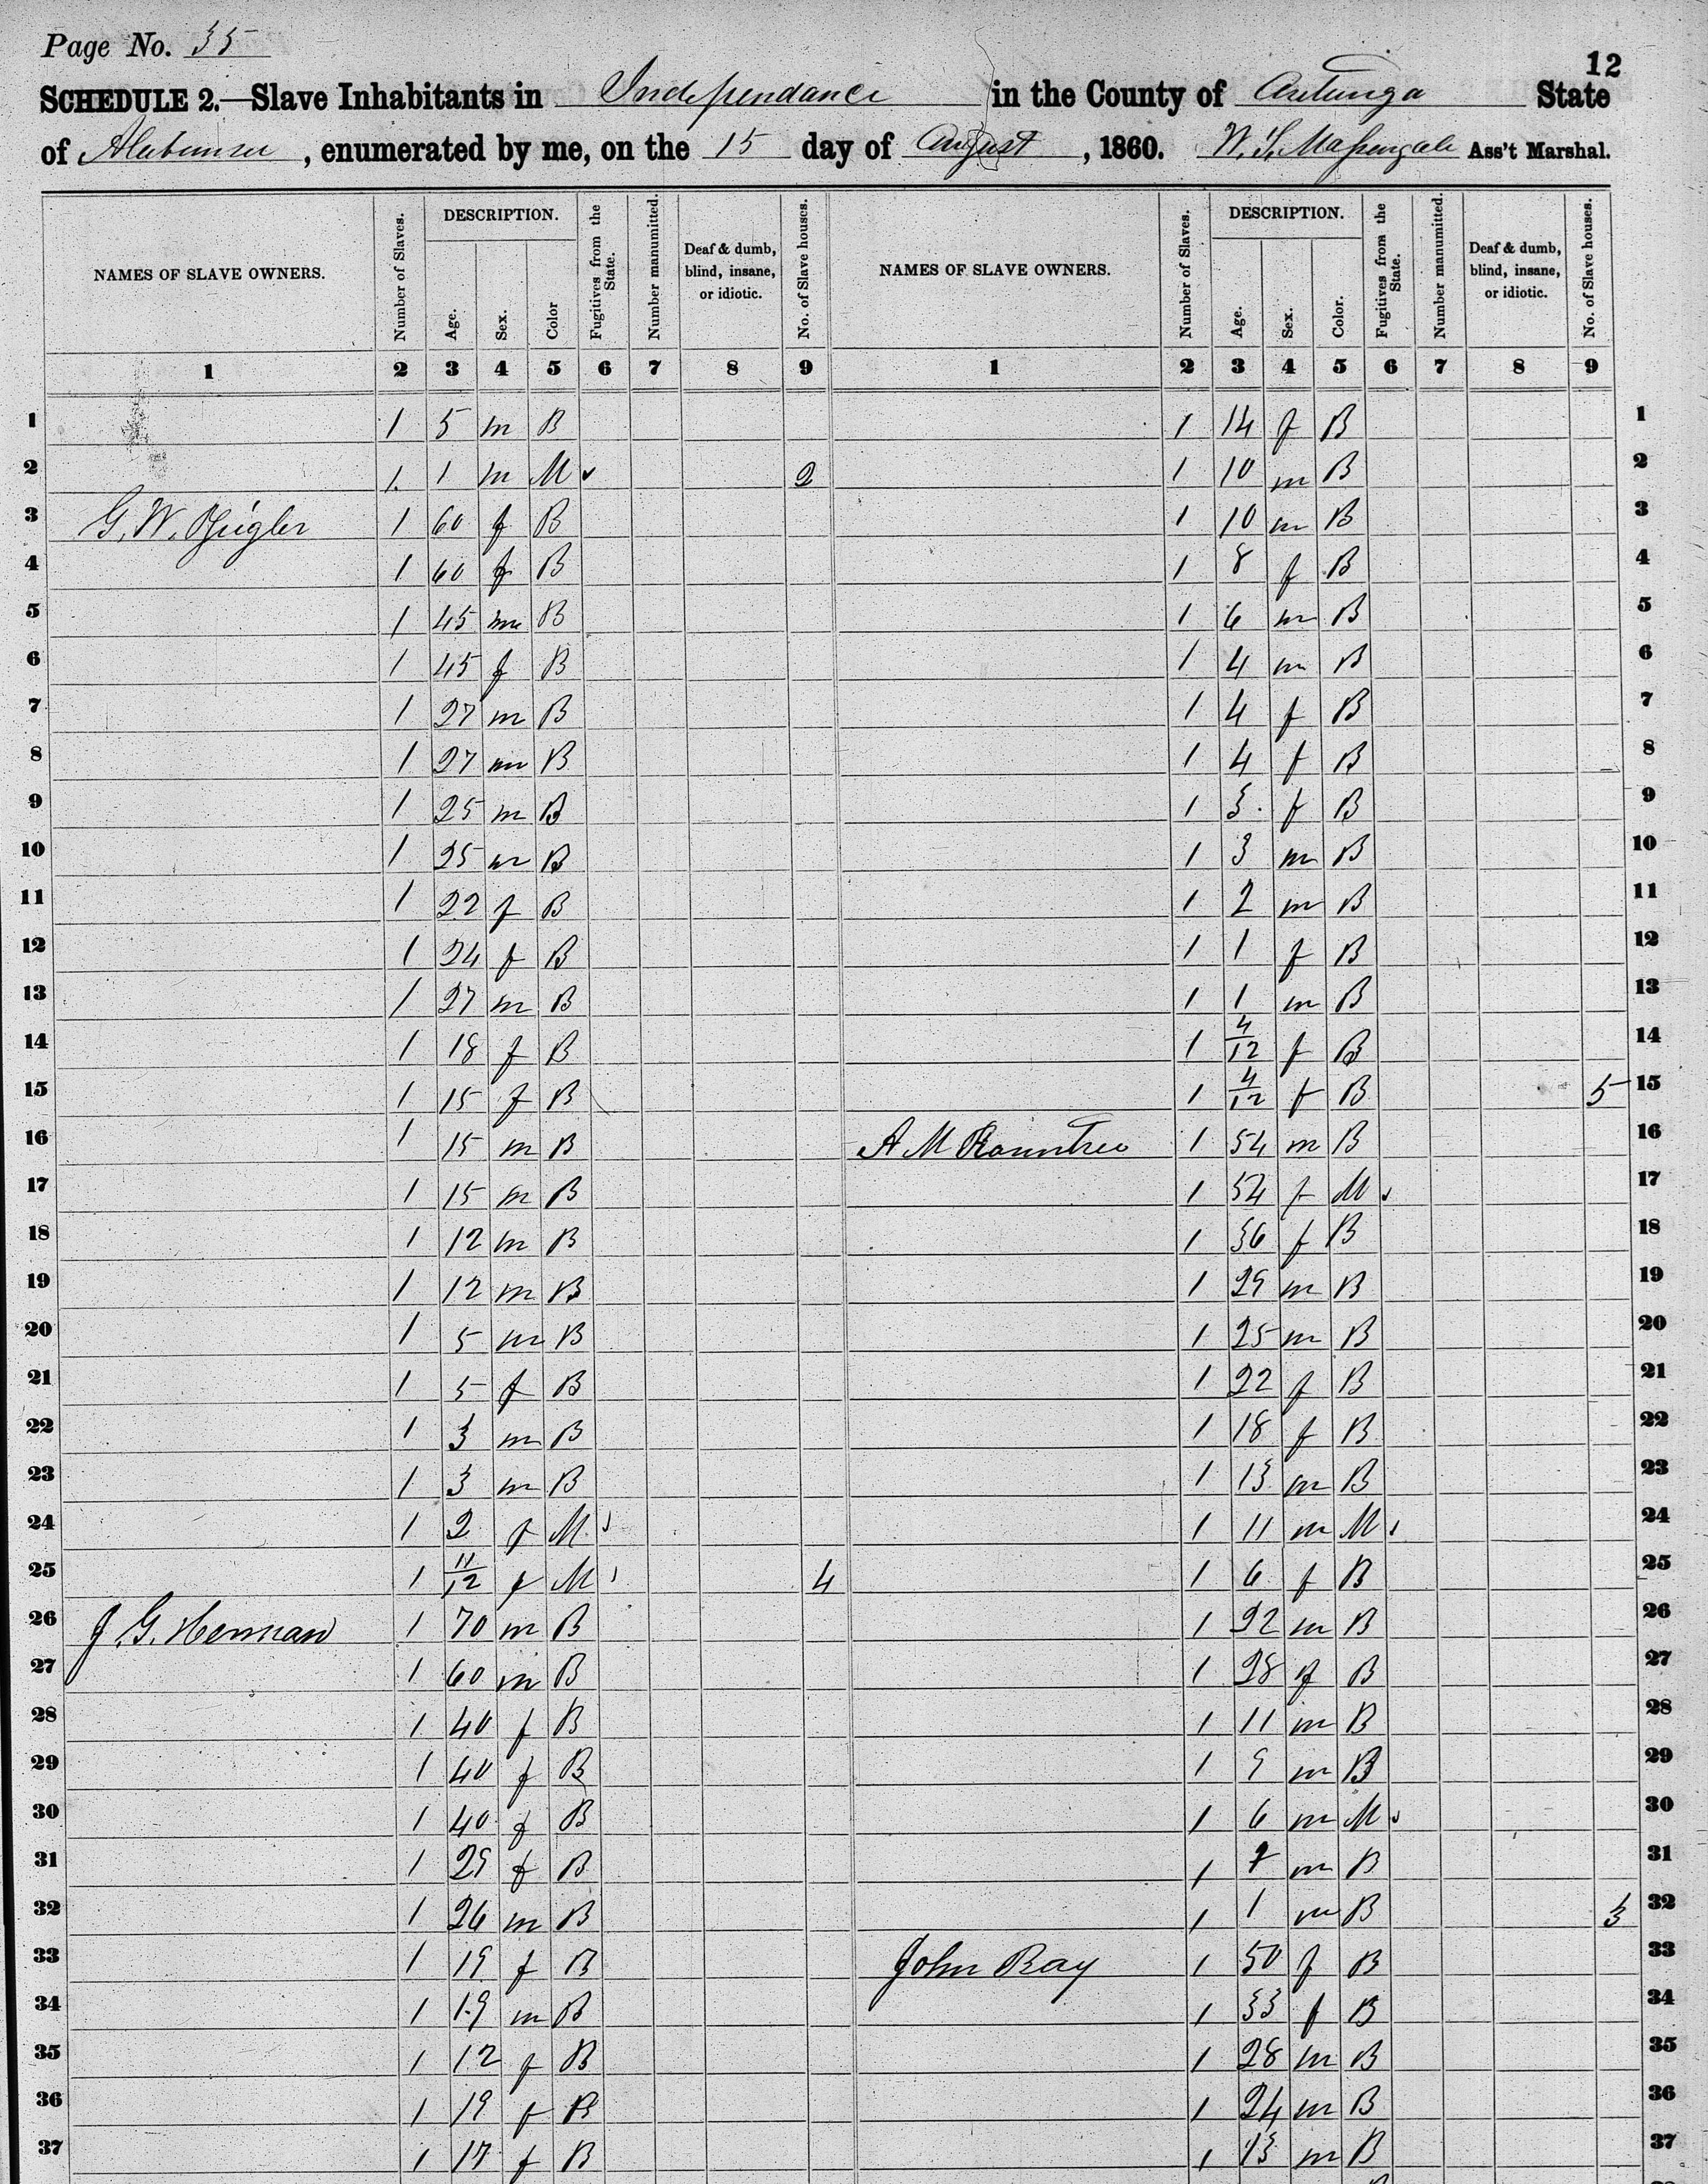 Page No. 35
12
SCHEDULE 2.—Slave Inhabitants in Independance in the County of Autauga State
of Alabama, enumerated by me, on the 15 day of August, 1860. Ass't Marshal.
NAMES OF SLAVE OWNERS. Number of Slaves. DESCRIPTION. Age. Sex. Color Fugitives from the State. Number manumitted. Deaf & dumb, blind, insane, or idiotic. No. of Slave houses. NAMES OF SLAVE OWNERS. Number of Slaves. DESCRIPTION. Age. Sex. Color. Fugitives from the State. Number manumitted. Deaf & dumb, blind, insane, or idiotic. No. of Slave houses.
1 2 3 4 5 6 7 8 9 1 2 3 4 5 6 7 8 9
1 1 5 m B 1 14 f B 1
2 1 1 m M 2 1 10 m B 2
3 G. W. Zeigler 1 60 f B 1 10 m B 3
4 1 60 f B 1 8 f B 4
5 1 45 m B 1 6 m B 5
6 1 45 f B 1 4 m B 6
7 1 27 m B 1 4 f B 7
8 1 27 m B 1 4 f B 8
9 1 25 m B 1 3 f B 9
10 1 25 m B 1 3 m B 10
11 1 22 f B 1 2 m B 11
12 1 24 f B 1 1 f B 12
13 1 27 m B 1 1 m B 13
14 1 18 f B 1 4/12 f B 14
15 1 15 f B 1 4/12 f B 5 15
16 1 15 m B A M Rountree 1 54 m B 16
17 1 15 m B 1 54 f M 17
18 1 12 m B 1 36 f B 18
19 1 12 m B 1 29 m B 19
20 1 5 m B 1 25 m B 20
21 1 5 f B 1 22 f B 21
22 1 3 m B 1 18 f B 22
23 1 3 m B 1 13 m B 23
24 1 2 f M 1 11 m M 24
25 1 11/12 f M 4 1 6 f B 25
26 J. G. 1 70 m B 1 32 m B 26
27 1 60 m B 1 28 f B 27
28 1 40 f B 1 11 m B 28
29 1 40 f B 1 9 m B 29
30 1 40 f B 1 6 m M 30
31 1 29 f B 1 m B 31
32 1 26 m B 1 1 m B 3 32
33 1 19 f B John Ray 1 50 f B 33
34 1 19 m B 1 33 f B 34
35 1 12 f B 1 28 m B 35
36 1 19 f B 1 24 m B 36
37 1 17 f B 1 13 m B 37